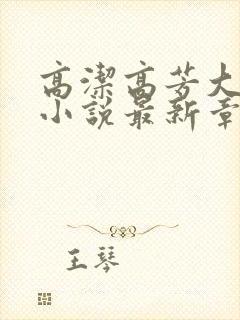 高潔高芳大
小說最新章
王琴